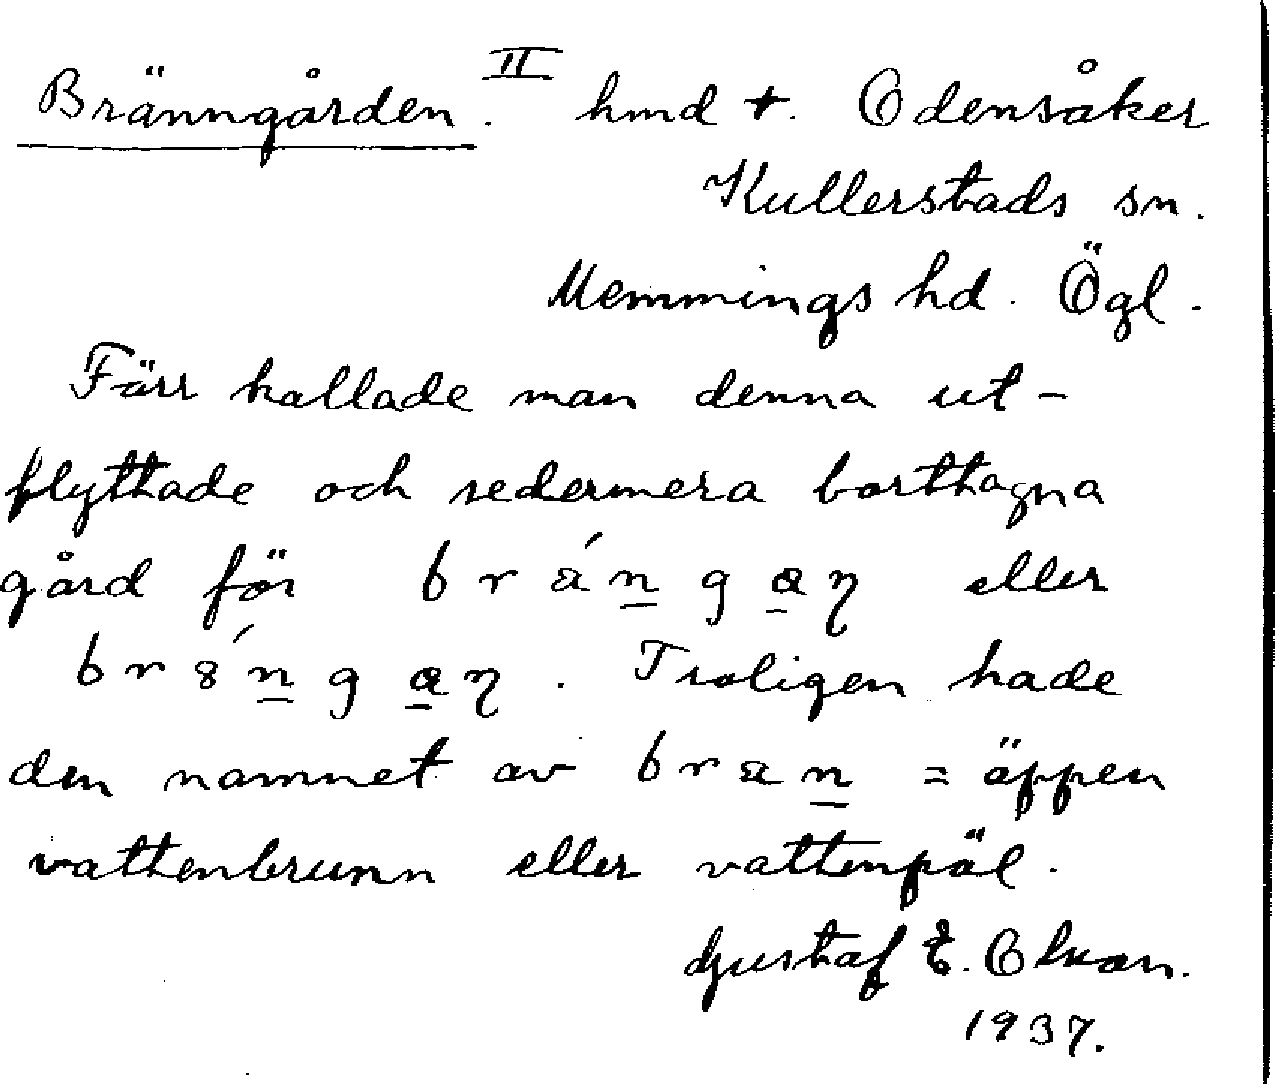 Bränngården. II hmd +. Odensåker
Kullerstads sn.
Memmings hd. Ögl.
Förr kallade man denna ut-
flyttade och sedermera borttagna
gård för eller
Troligen hade
den namnet av = öppen
vattenbrunn eller vattenpöl.
Gustaf E. Olsson.
1937.